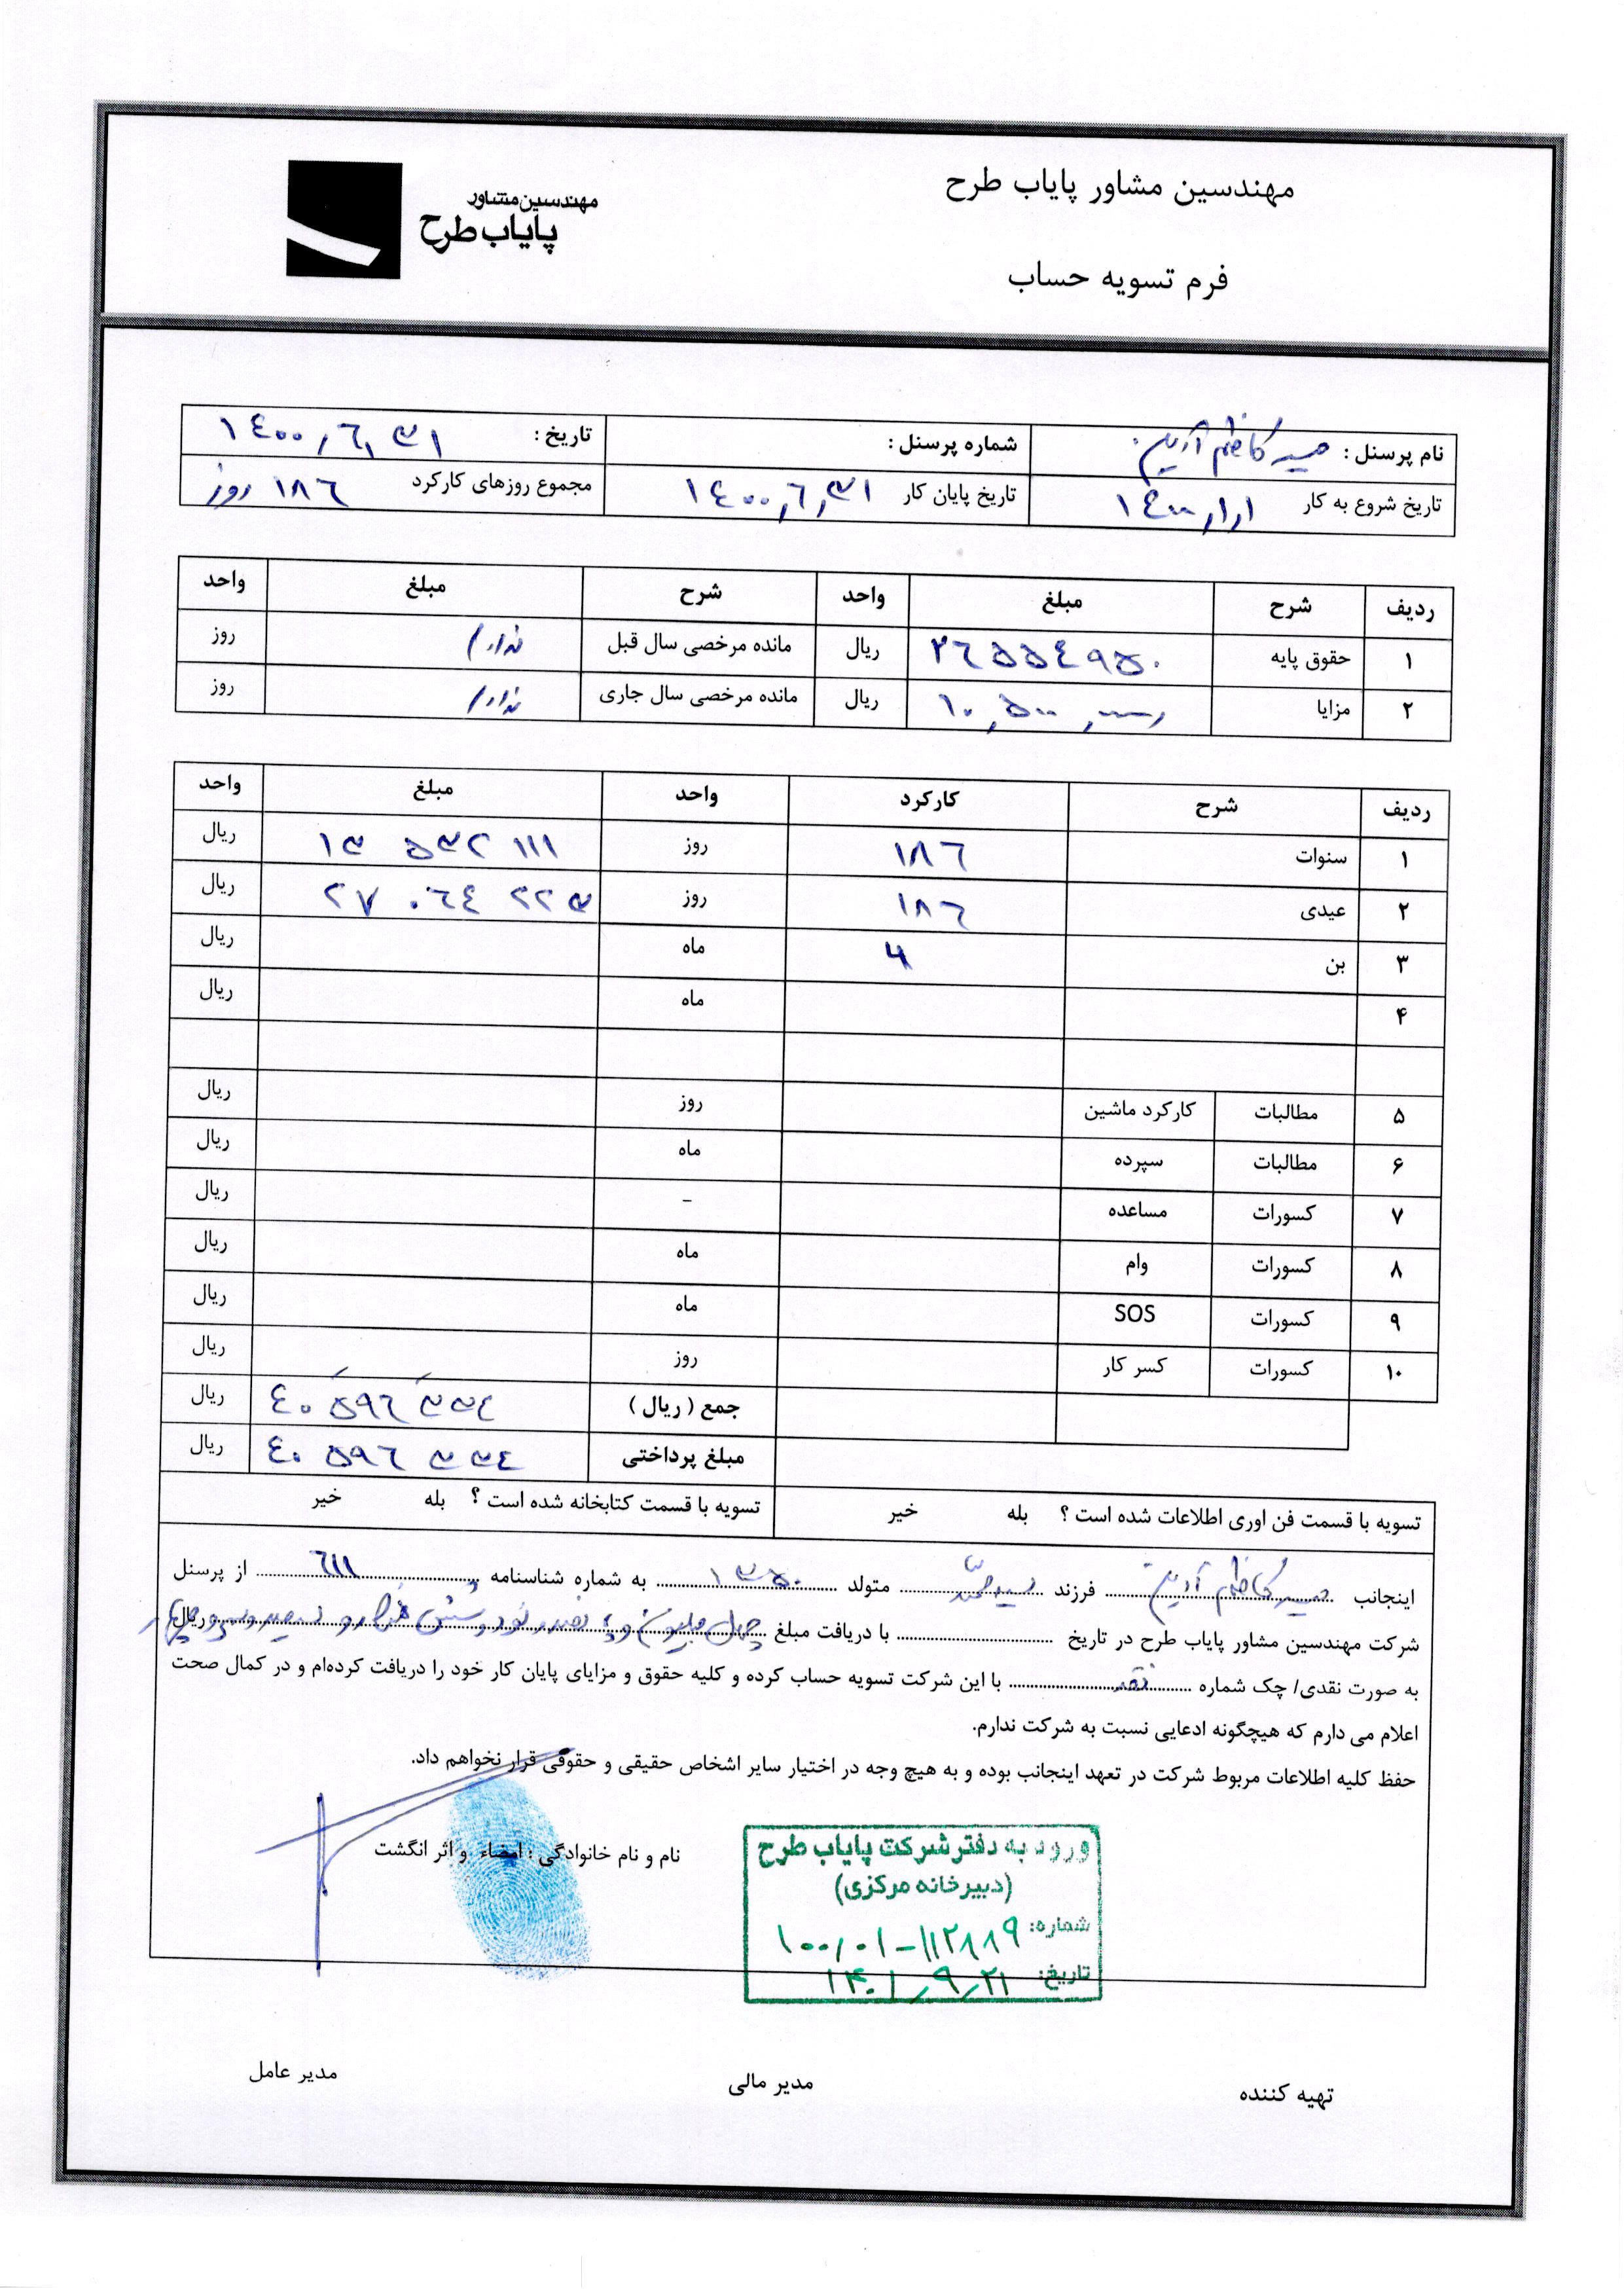 مهندسین مشاور پایاب طرح
مهندسین مشاور
پایاب طرح
فرم تسویه حساب
نام پرسنل : شماره پرسنل : تاریخ : ۱۴۰۰,۶,۳۱
تاریخ شروع به کار ۱۴۰۰,۱,۱ تاریخ پایان کار ۱۴۰۰,۶,۳۱ مجموع روزهای کارکرد ۱۸۶ روز
ردیف شرح مبلغ واحد شرح مبلغ واحد
۱ حقوق پایه ۲۶۵۵۴۹۵۰ ریال مانده مرخصی سال قبل ندارم روز
۲ مزایا ۱۰,۵۰۰,۰۰۰ ریال مانده مرخصی سال جاری ندارم روز
ردیف شرح کارکرد واحد مبلغ واحد
۱ سنوات ۱۸۶ روز ۱۳ ۵۳۲ ۱۱۱ ریال
۲ عیدی ۱۸۶ روز ۲۷ ۰۶۴ ۲۲۳ ریال
۳ بن ۶ ماه ریال
۴ ماه ریال
۵ مطالبات کارکرد ماشین روز ریال
۶ مطالبات سپرده ماه ریال
۷ کسورات مساعده – ریال
۸ کسورات وام ماه ریال
۹ کسورات SOS ماه ریال
۱۰ کسورات کسر کار روز ریال
جمع ( ریال ) ۴۰ ۵۹۶ ۳۳۴ ریال
مبلغ پرداختی ۴۰ ۵۹۶ ۳۳۴ ریال
تسویه با قسمت فن اوری اطلاعات شده است ؟ بله خیر تسویه با قسمت کتابخانه شده است ؟ بله خیر
اینجانب فرزند سیدمحمد متولد ۱۳۵۰ به شماره شناسنامه ۶۱۱ از پرسنل
شرکت مهندسین مشاور پایاب طرح در تاریخ با دریافت مبلغ چهل میلیون و پانصد و نود و شش هزار و سیصد و سی و چهار ریال
به صورت نقدی/ چک شماره نقد با این شرکت تسویه حساب کرده و کلیه حقوق و مزایای پایان کار خود را دریافت کرده‌ام و در کمال صحت
اعلام می دارم که هیچگونه ادعایی نسبت به شرکت ندارم.
حفظ کلیه اطلاعات مربوط شرکت در تعهد اینجانب بوده و به هیچ وجه در اختیار سایر اشخاص حقیقی و حقوقی قرار نخواهم داد.
نام و نام خانوادگی : امضاء و اثر انگشت
ورود به دفتر شرکت پایاب طرح
(دبیرخانه مرکزی)
شماره: ۱۰۰/۰۱-۱۱۲۸۸۹
تاریخ: ۱۴۰۱,۹,۲۱
تهیه کننده مدیر مالی مدیر عامل